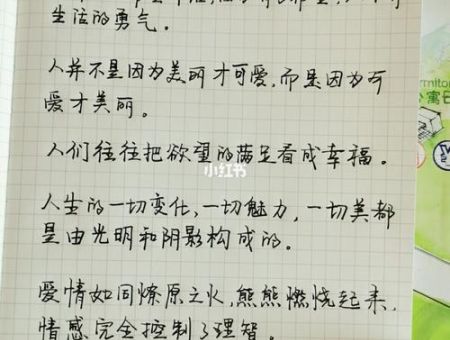 生活的勇气。
人并不是因为美丽才可爱,而是因为可
爱才美丽。
人们往往把欲望的满足看成幸福。
小红书
人生的一切变化,一切魅力,一切美都
是由光明和阴影构成的。
爱情如同燎原之火,熊熊燃烧起来,
情感完全控制了理智。